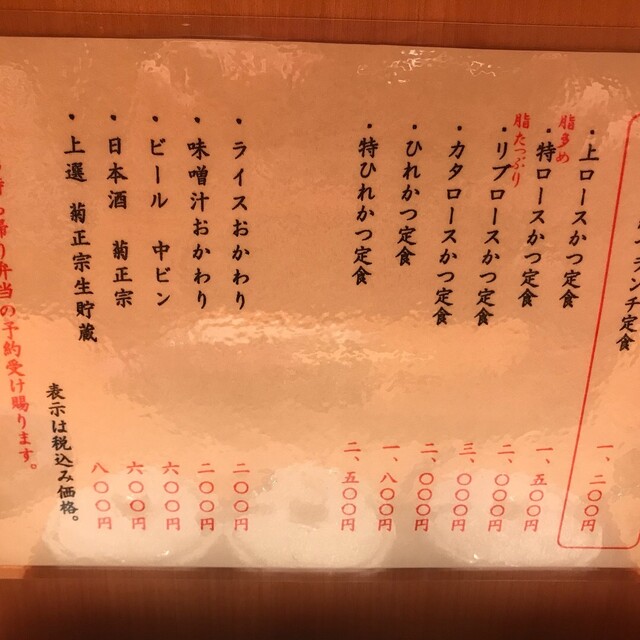 ランチ定食 一、二〇〇円
・上ロースかつ定食 一、五〇〇円
脂多め
・特ロースかつ定食 二、〇〇〇円
脂たっぷり
・リブロースかつ定食 三、〇〇〇円
・カタロースかつ定食 二、〇〇〇円
・ひれかつ定食 一、八〇〇円
・特ひれかつ定食 二、五〇〇円
・ライスおかわり 二〇〇円
・味噌汁おかわり 二〇〇円
・ビール 中ビン 六〇〇円
・日本酒 菊正宗 六〇〇円
・上選 菊正宗生貯蔵 八〇〇円
表示は税込み価格。
持ち帰り弁当の予約受け賜ります。